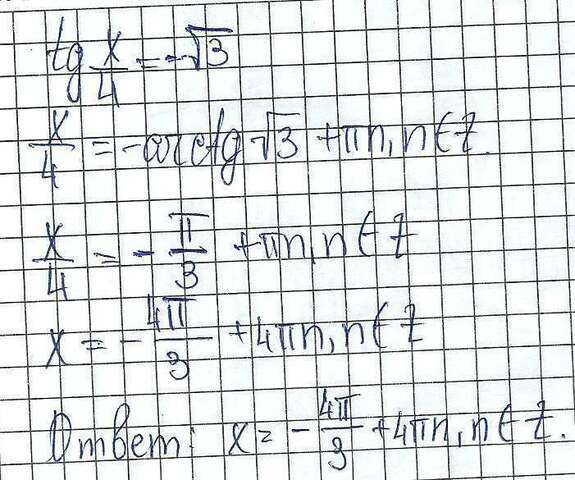 tg x/4 = -√3
x/4 = -arctg √3 + πn, n ∈ Z.
x/4 = - π/3 + πn, n ∈ Z
x = - 4π/3 + 4πn, n ∈ Z
Ответ: x = - 4π/3 + 4πn, n ∈ Z.